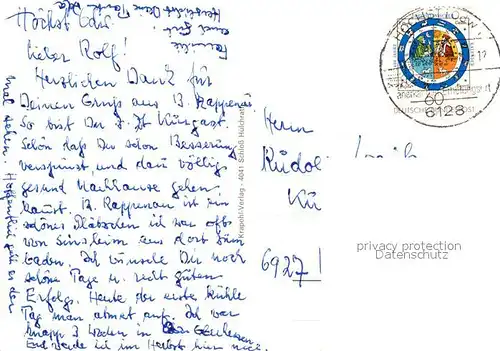 Höchst
Lieber Rolf!
Herzlichen Dank für
Deinen Gruß aus B. Rappenau
So bist Du z. Zt Kurgast.
Schön daß Du schon Besserung
verspürst, und dann völlig
gesund nachhause gehen
kannst. B. Rappenau ist ein
schönes Plätzchen ich war oft
von Sinsheim aus dort zum
baden. Ich wünsche Dir noch
schöne Tage u. recht guten
Erfolg. Heute der erste kühle
Tag man atmet auf. Ich war
knapp 3 Wochen in
und werde ich im Herbst hier
mal sehen. Hoffentlich
Familie
Krapohl-Verlag - 4041 Schloß Hülchrath
Herrn
Rudol
Kü
6927!
60
6128
DEUTSCHE BUNDESPOST
privacy protection
Datenschutz